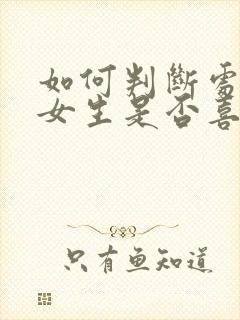 如何判斷電
女生是否喜
只有魚知道